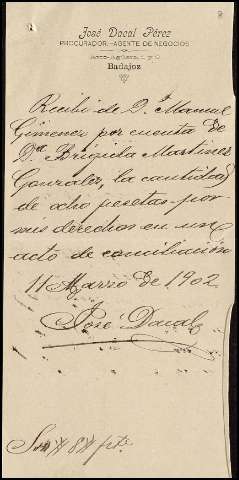 José Dacal Pérez
PROCURADOR-AGENTE DE NEGOCIOS
Badajoz
Recibí de D. Manuel
Gimenez por cuenta de
Dª Brigida Martinez
Gonzalez, la cantidad
de ocho pesetas por
mis derechos en un
acto de conciliación
11 Marzo de 1902
José Dacal
Son # 8 # pts.